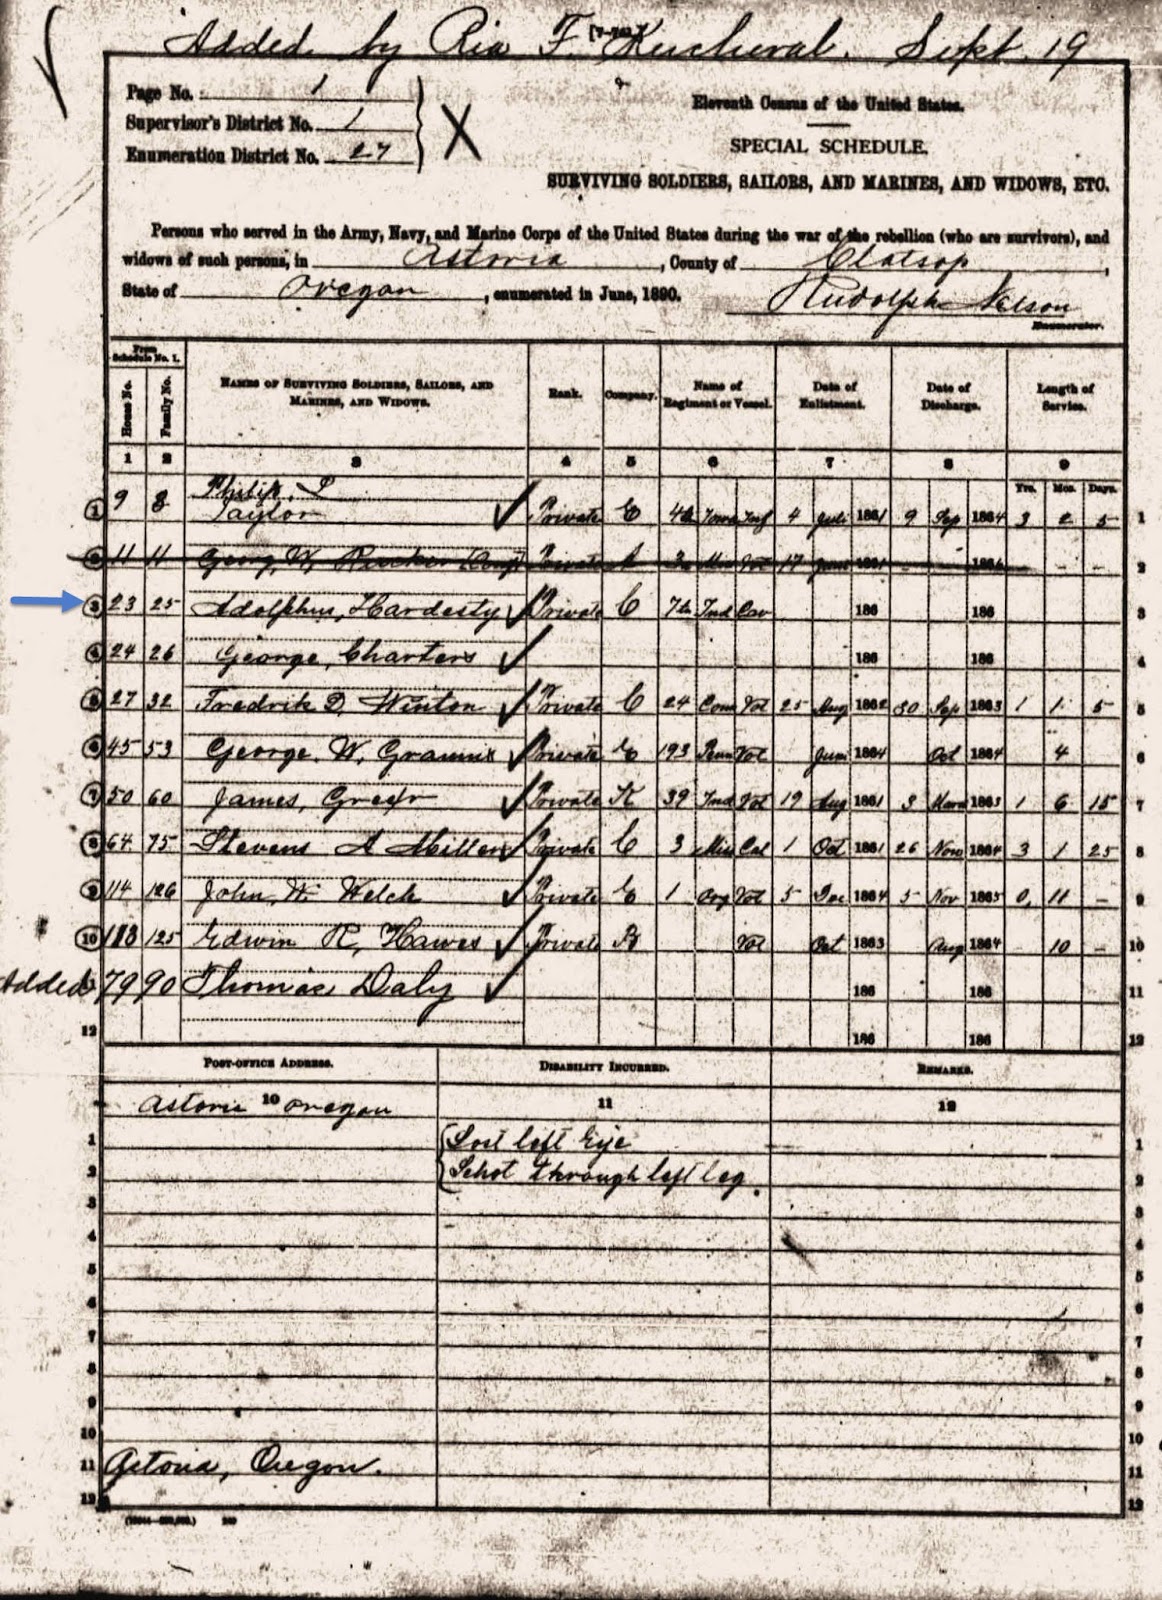 [7-762]
Added by Ria F. Kercheval. Sept. 19
Page No. 1
Supervisor's District No. 1
Enumeration District No. 27
X
Eleventh Census of the United States.
SPECIAL SCHEDULE.
SURVIVING SOLDIERS, SAILORS, AND MARINES, AND WIDOWS, ETC.
Persons who served in the Army, Navy, and Marine Corps of the United States during the war of the rebellion (who are survivors), and
widows of such persons, in Astoria, County of Clatsop,
State of Oregon, enumerated in June, 1890. Rudolph Nelson
Enumerator.
From Schedule No. 1.
House No. Family No. NAMES OF SURVIVING SOLDIERS, SAILORS, AND MARINES, AND WIDOWS. Rank. Company. Name of Regiment or Vessel. Date of Enlistment. Date of Discharge. Length of Service.
1 2 3 4 5 6 7 8 9
Yrs. Mos. Days.
Philip, L
1 9 8 Taylor Private E 4th Iowa Inf 4 Juli 1861 9 Sep 1864 3 2 5 1
2 11 11 Georg, W, Rucker Private A 17 June 1861 - 1864 - - 2
3 23 25 Adolphus, Hardesty Private C 7th Ind Cav 186 186 3
4 24 26 George, Charters 186 186 4
5 27 32 Fredrik D, Winton Private C 24 Con Vol 25 Aug 1862 30 Sep 1863 1 1 5 5
6 45 53 George. W, Grannis Private E 193 Penn Vol Juni 1864 Oct 1864 4 6
7 50 60 James, Greer Private K 39 Ind Vol 19 Aug 1861 3 Marz 1863 1 6 15 7
8 64 75 Stevens A Miller Private C 3 Mis Cal 1 Oct 1861 26 Nov 1864 3 1 25 8
9 114 126 John, W. Welch Private E 1 Org Vol 5 Dec 1864 5 Nov 1865 0, 11 - 9
10 113 125 Edwin R, Hawes Private Vol Oct 1863 Aug 1864 10 - 10
Added 79 90 Thomas Daly 186 186 11
12 186 186 12
POST-OFFICE ADDRESS. DISABILITY INCURRED. REMARKS.
10 11 12
Astoria Oregon
1 Lost left Eye 1
2 Schot through left leg. 2
3 3
4 4
5 5
6 6
7 7
8 8
9 9
10 10
11 Astoria, Oregon. 11
12 12